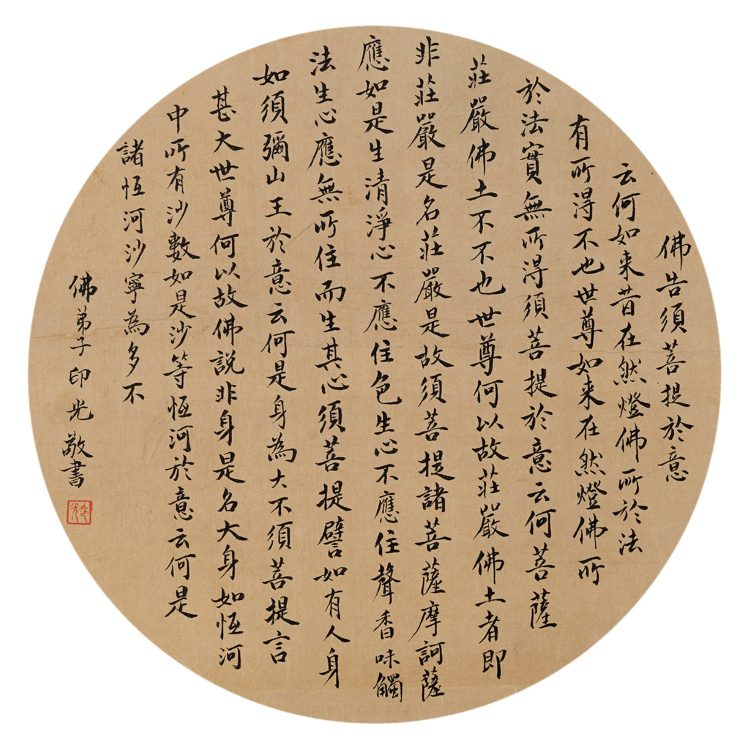 佛告須菩提於意
云何如来昔在然燈佛所於法
有所得不也世尊如来在然燈佛所
於法實無所得須菩提於意云何菩薩
莊嚴佛土不不也世尊何以故莊嚴佛土者即
非莊嚴是名莊嚴是故須菩提諸菩薩摩訶薩
應如是生清淨心不應住色生心不應住聲香味觸
法生心應無所住而生其心須菩提譬如有人身
如須彌山王於意云何是身為大不須菩提言
甚大世尊何以故佛說非身是名大身如恆河
中所有沙數如是沙等恆河於意云何是
諸恆河沙寧為多不
佛弟子印光敬書